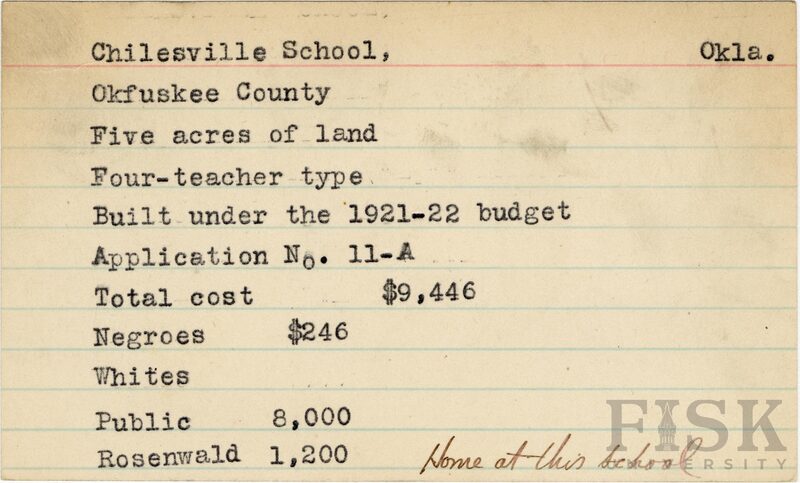 Chilesville School, Okla.
Okfuskee County
Five acres of land
Four-teacher type
Built under the 1921-22 budget
Application No. 11-A
Total cost $9,446
Negroes $246
Whites
Public 8,000
Rosenwald 1,200
Home at this school
FISK
UNIVERSITY